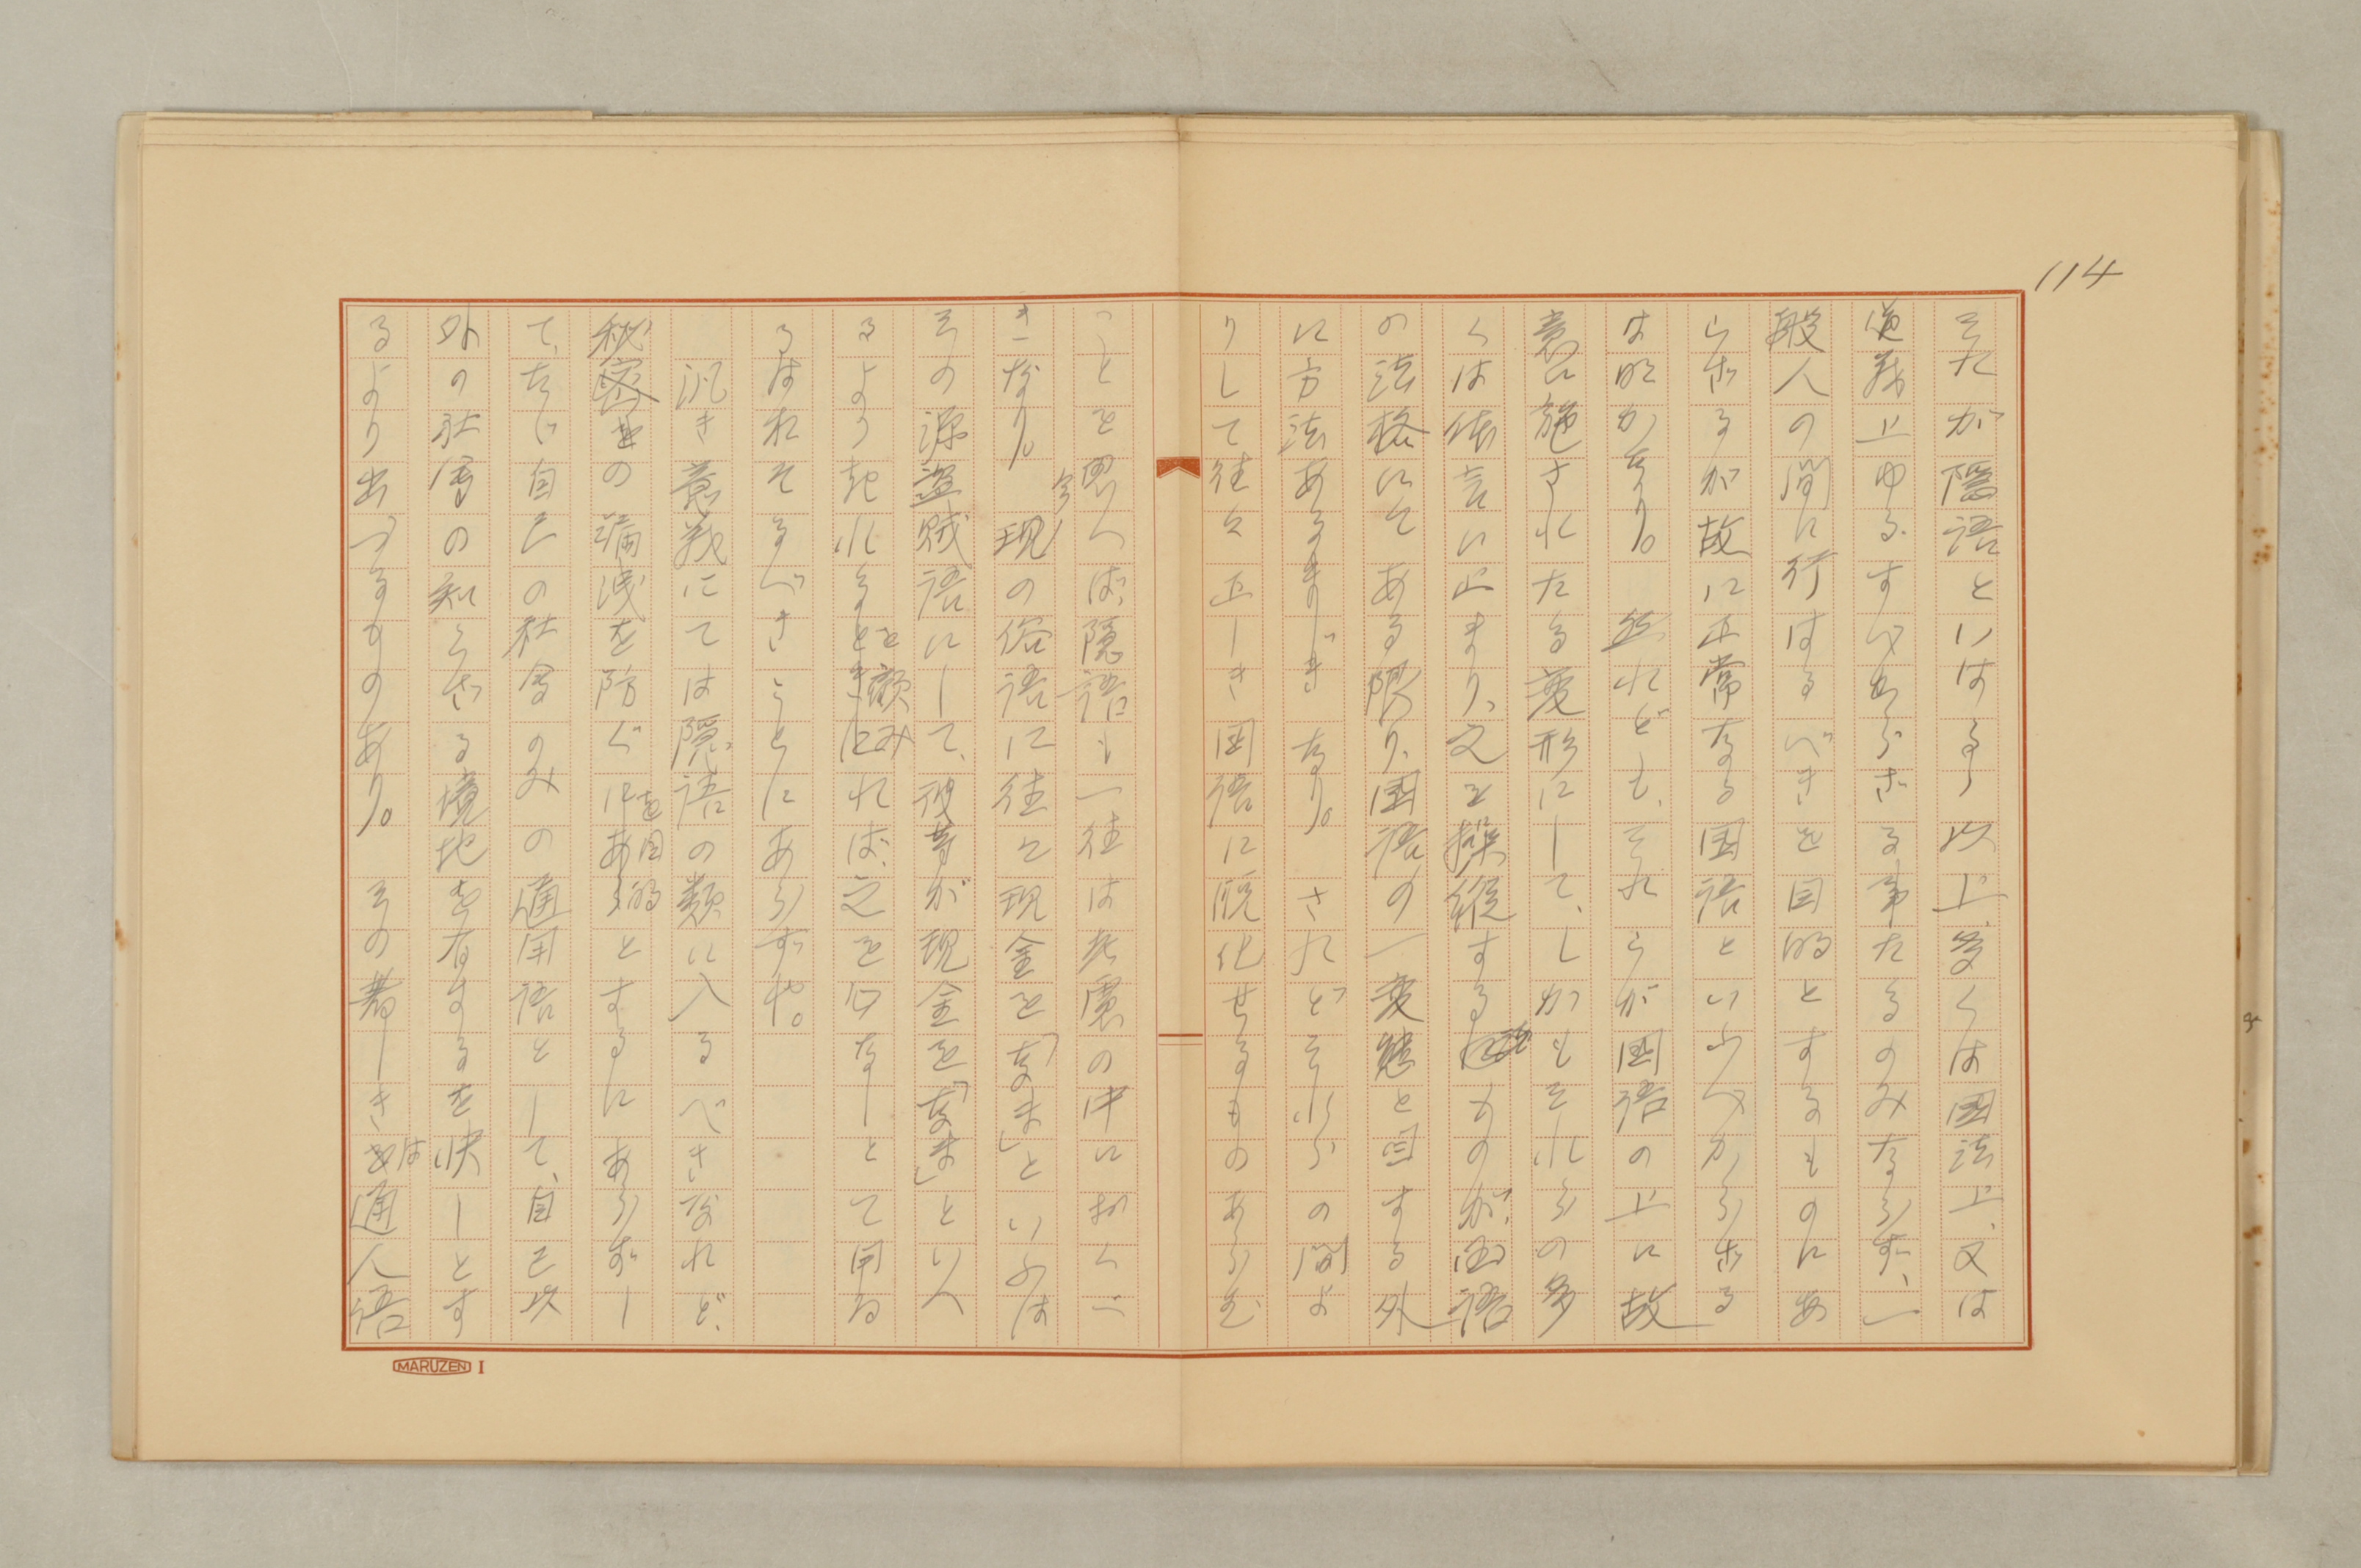 114
それが隠語といはるゝ以上、多くは国法上、又は
道義上ゆるすべからざる事たるのみならず、一
般人の間に行はるべきを目的とするものにあ
らざるが故に正常なる国語といふべからざる
は明かなり。然れども、それらが国語の上に故
意に施されたる変形にして、しかもそれらの多
くは依言に止まり、文を操縦するものが、国語
の法格にてある限り、国語の一変態と目する外
に方法あるまじきなり。されどそれらの間よ
りして往々正しき国語に醇化せるものあら
ことを思へば、隠語も一往は考慮の中におくべ
きなり。今現の俗語に往々現金を「なま」といふは
その源盗賊語にして、彼等が現金を「なま」といへ
るより起れるを顧みれば、之を なしとて用ゐ
るはおそるべきことにあらずや。
汎き意義にては隠語の類に入るべきなれど、
秘密の漏洩を防ぐを目的とするにあらずし
て、たゞ自己の社会のみの通用語として、自己以
外の社会の知らざる境地を有するを快しとす
るより出づるものあり。その著しきは通人語
MARUZEN I